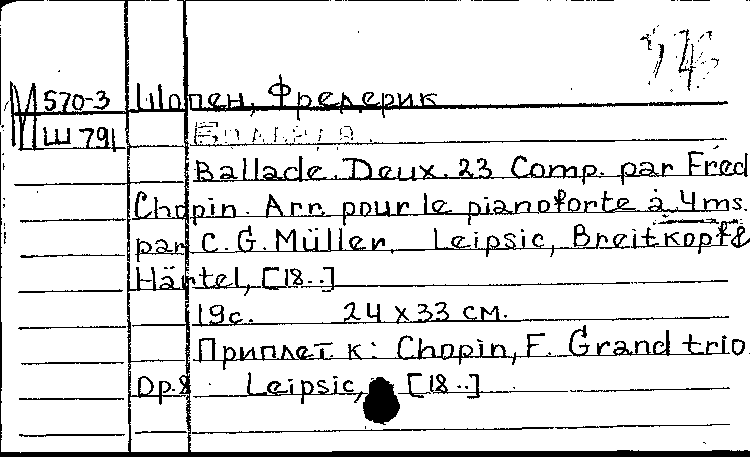 М 570-3 Шопен, Фредерик
Ш 791 Баллада.
Ballade. Deux. 23 Comp. par Fred
Chopin. Arr. pour le pianoforte à 4 ms.
par C. G. Müller. Leipsic, Breitkopf &
Härtel, [18..]
19 с. 24 x 33 см.
Приплет к: Chopin, F. Grand trio
Op. 8 Leipsic, [18..]